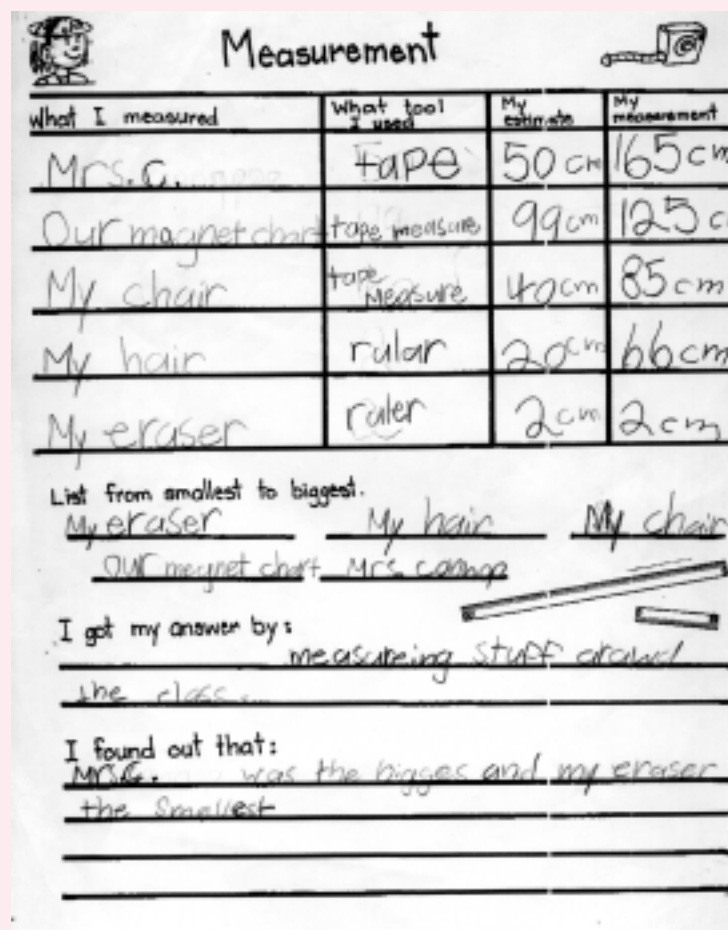 Measurement
What I measured What tool I used My estimate My measurement
Mrs. C. tape 50 cm 165 cm
Our magnet chart tape measure 99 cm 125 c
My chair tape measure 40 cm 85 cm
My hair rular 20 cm 66 cm
My eraser ruler 2 cm 2 cm
List from smallest to biggest.
My eraser My hair My chair
Our magnet chart Mrs
I got my answer by:
measureing stuff
the class.
I found out that:
Mrs. C. was the bigges and my eraser
the smallest